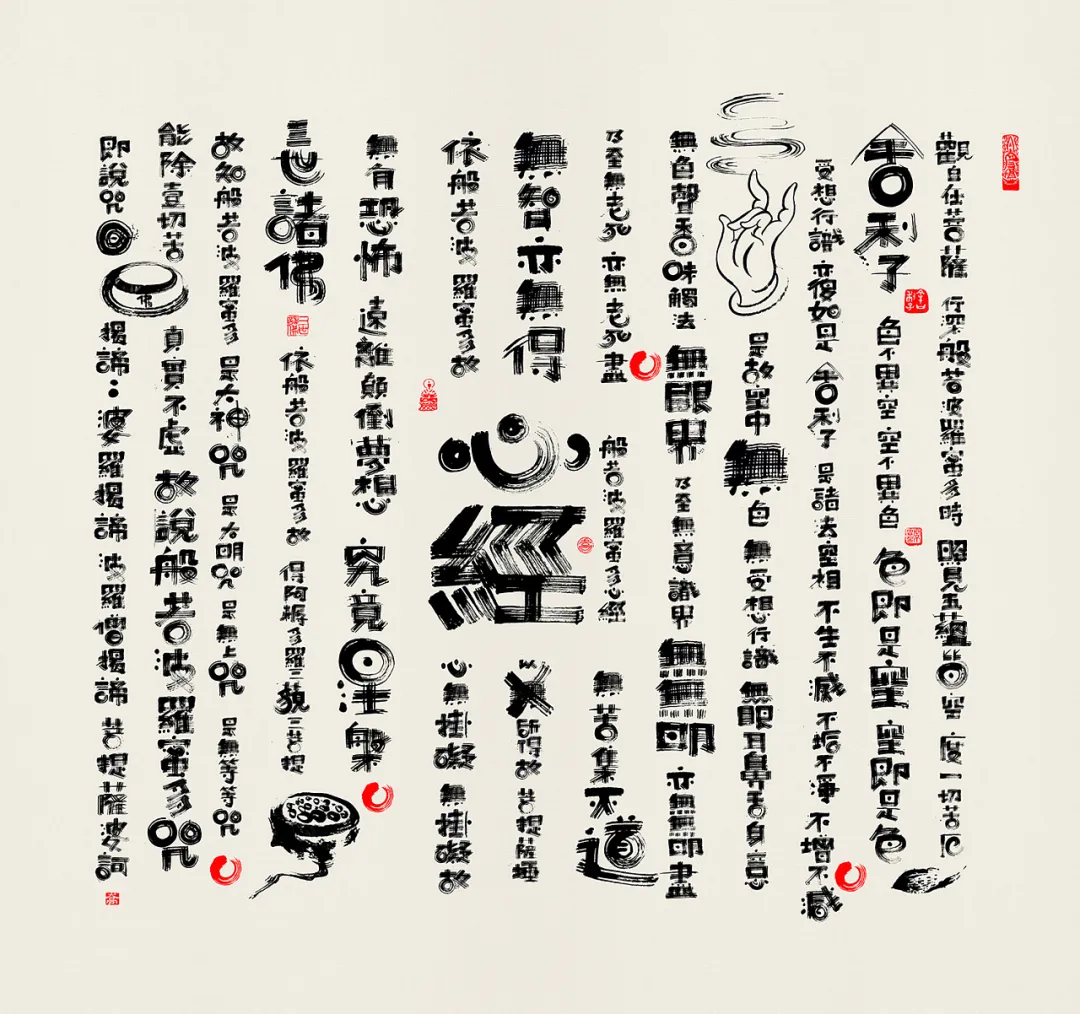 觀自在菩薩 行深般若波羅蜜多時 照見五蘊皆空 度一切苦厄
舍利子 色不異空 空不異色 色即是空 空即是色
受想行識 亦復如是 舍利子 是諸法空相 不生不滅 不垢不淨 不增不減
是故空中 無色 無受想行識 無眼耳鼻舌身意
無色聲香味觸法 無眼界 乃至無意識界 無無明 亦無無明盡
乃至無老死 亦無老死盡
般若波羅蜜多心經
無苦集灭道
無智亦無得
心經
以無所得故 菩提薩埵
依般若波羅蜜多故
心無掛礙 無掛礙故
無有恐怖 遠離顛倒夢想 究竟涅槃
三世諸佛 依般若波羅蜜多故 得阿耨多羅三藐三菩提
故知般若波羅蜜多 是大神咒 是大明咒 是無上咒 是無等等咒
能除壹切苦 真實不虛 故說般若波羅蜜多咒
即說咒曰 佛 揭諦：婆羅揭諦 波羅僧揭諦 菩提薩婆訶